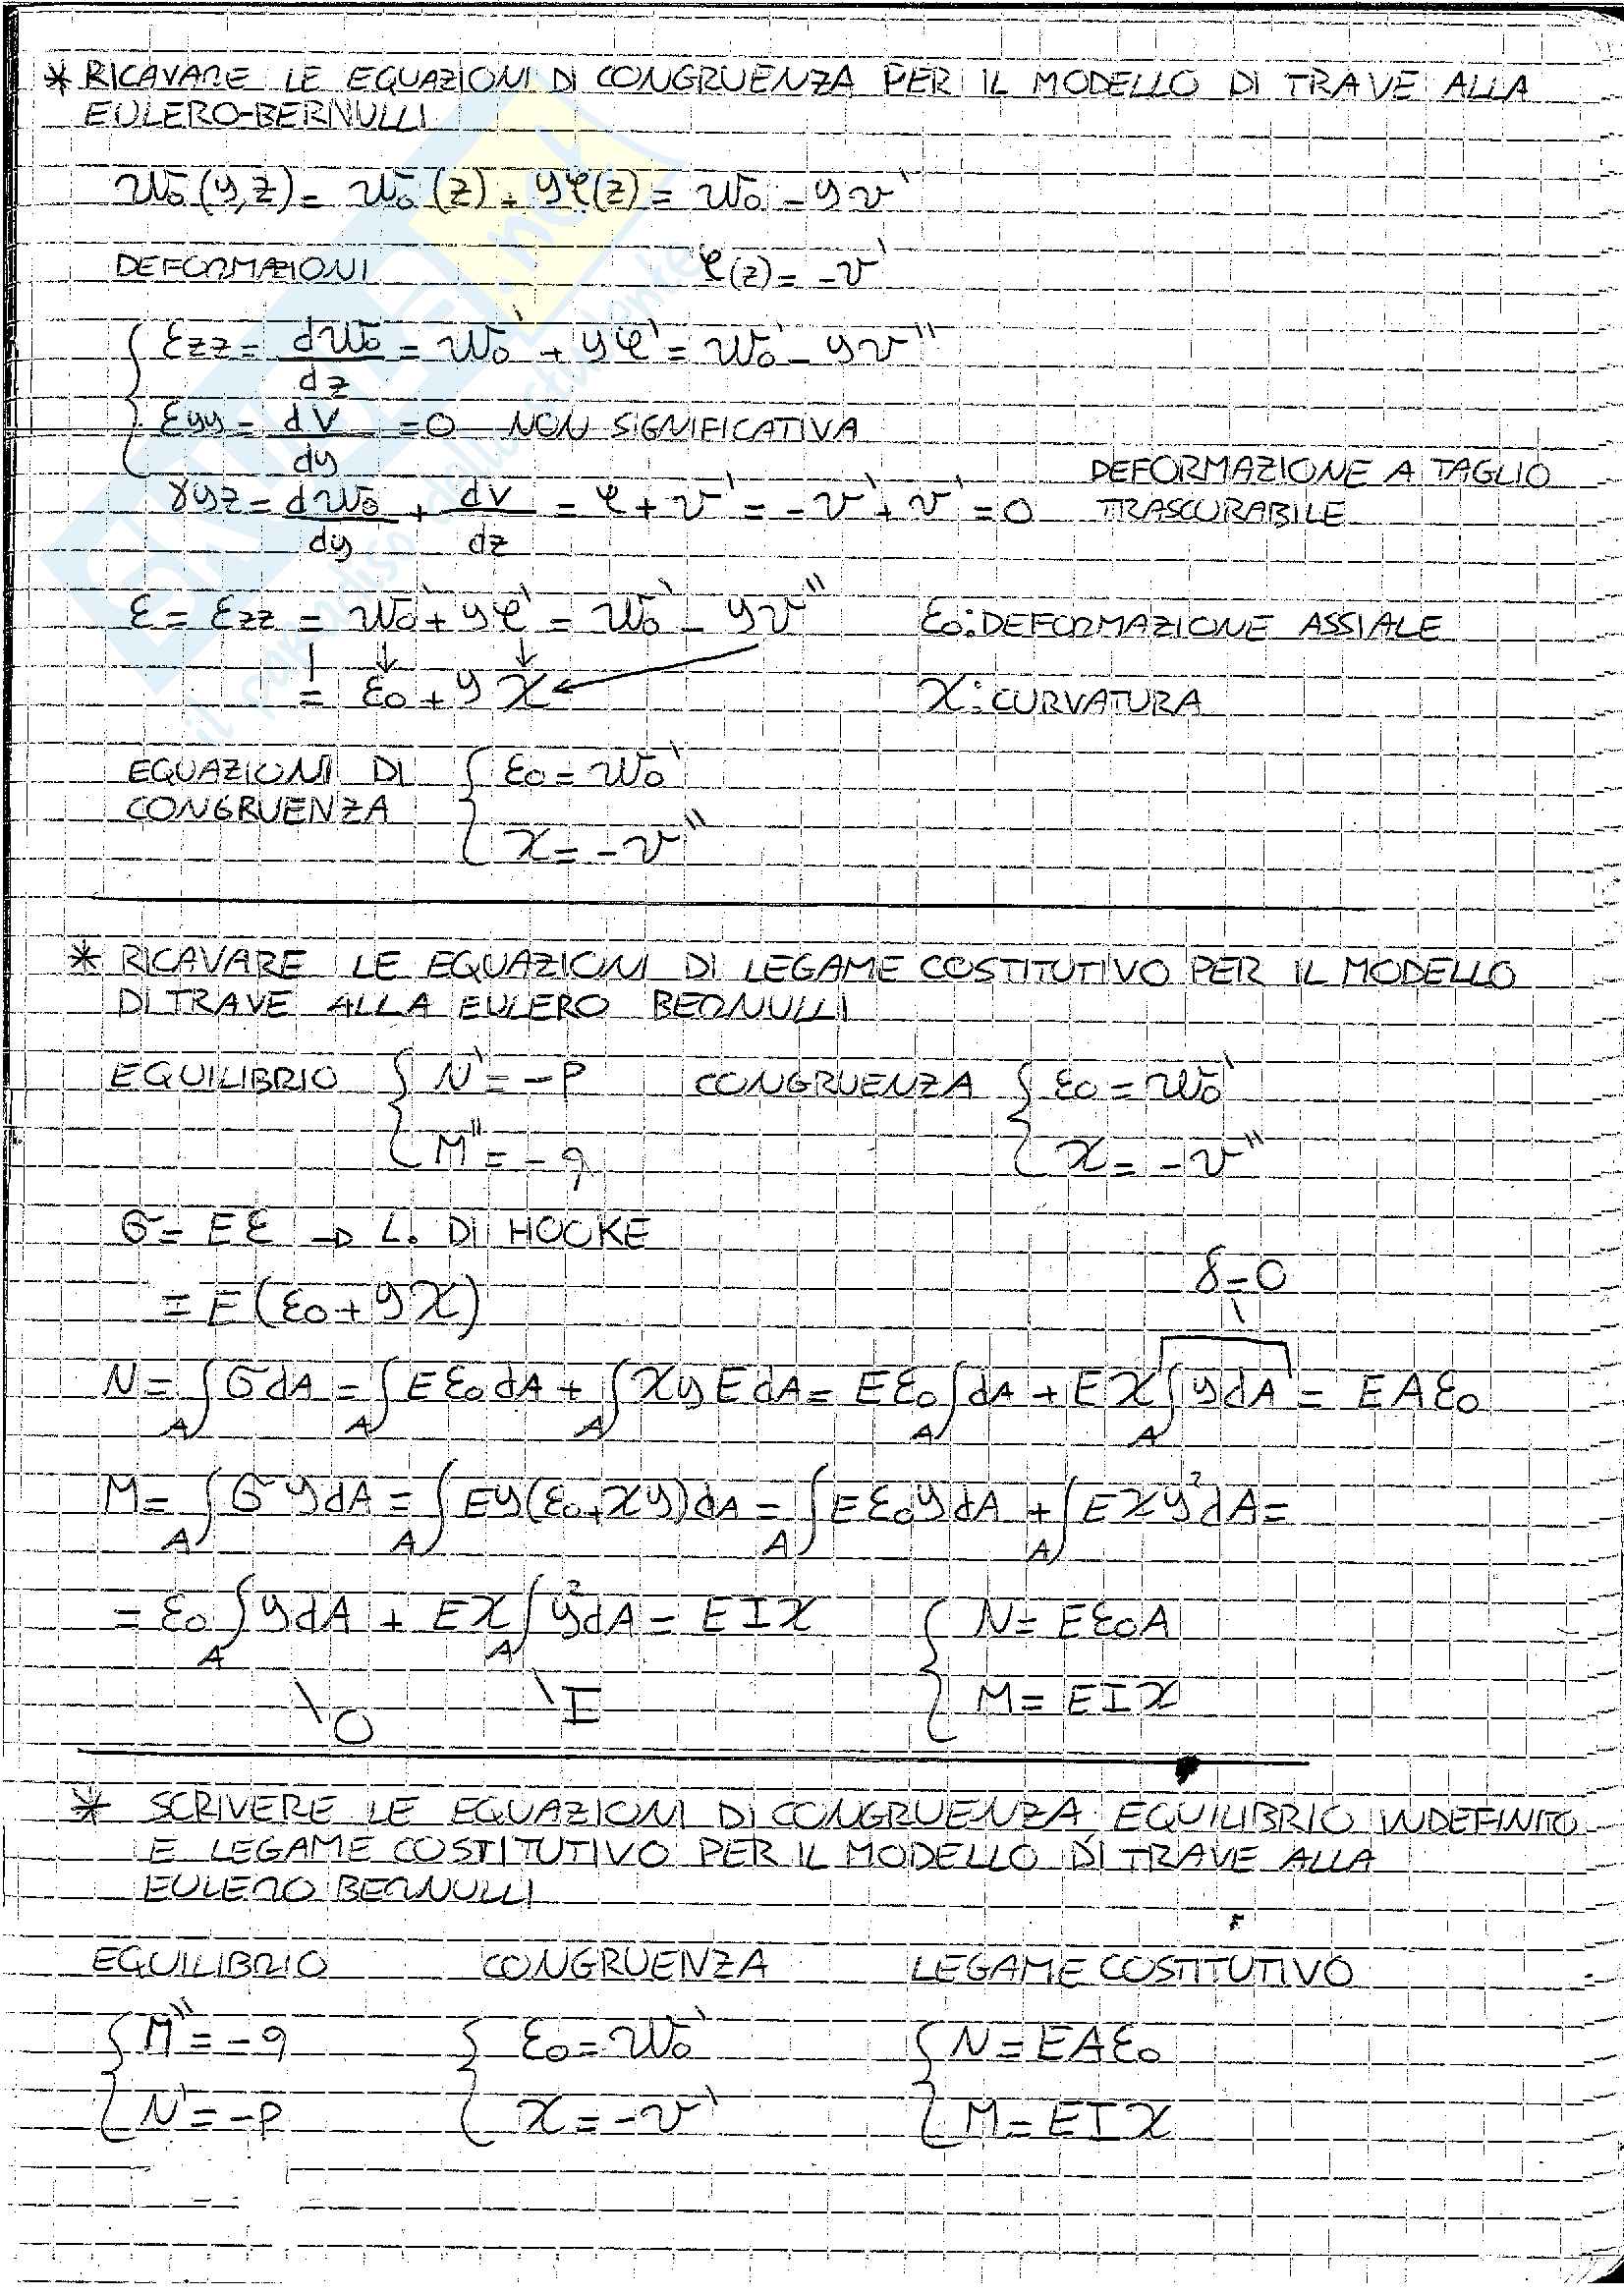 * RICAVARE LE EQUAZIONI DI CONGRUENZA PER IL MODELLO DI TRAVE ALLA
EULERO-BERNULLI
w₀(y,z) = w₀(z) + yφ(z) = w₀ - yv'
DEFORMAZIONI φ(z) = -v'
εzz = dw₀/dz = w₀' + yφ' = w₀' - yv''
εyy = dv/dy = 0 NON SIGNIFICATIVA
γyz = dw₀/dy + dv/dz = φ + v' = -v' + v' = 0 DEFORMAZIONE A TAGLIO TRASCURABILE
ε = εzz = w₀' + yφ' = w₀' - yv'' ε₀: DEFORMAZIONE ASSIALE
= ε₀ + yχ χ: CURVATURA
EQUAZIONI DI CONGRUENZA { ε₀ = w₀'
χ = -v''
* RICAVARE LE EQUAZIONI DI LEGAME COSTITUTIVO PER IL MODELLO
DI TRAVE ALLA EULERO BERNULLI
EQUILIBRIO { N' = -P CONGRUENZA { ε₀ = w₀'
M'' = -q χ = -v''
σ = Eε → L. DI HOOKE
= E(ε₀ + yχ) δ=0
N = ∫A σdA = ∫A Eε₀dA + ∫A χyEdA = Eε₀∫A dA + Eχ∫A ydA = EAε₀
M = ∫A σydA = ∫A Ey(ε₀+χy)dA = ∫A Eε₀ydA + ∫A Eχy²dA =
= ε₀∫A ydA + Eχ∫A y²dA = EIχ { N = Eε₀A
0 I M = EIχ
* SCRIVERE LE EQUAZIONI DI CONGRUENZA EQUILIBRIO INDEFINITO
E LEGAME COSTITUTIVO PER IL MODELLO DI TRAVE ALLA
EULERO BERNULLI
EQUILIBRIO CONGRUENZA LEGAME COSTITUTIVO
{ M'' = -q { ε₀ = w₀' { N = EAε₀
N' = -P χ = -v' M = EIχ